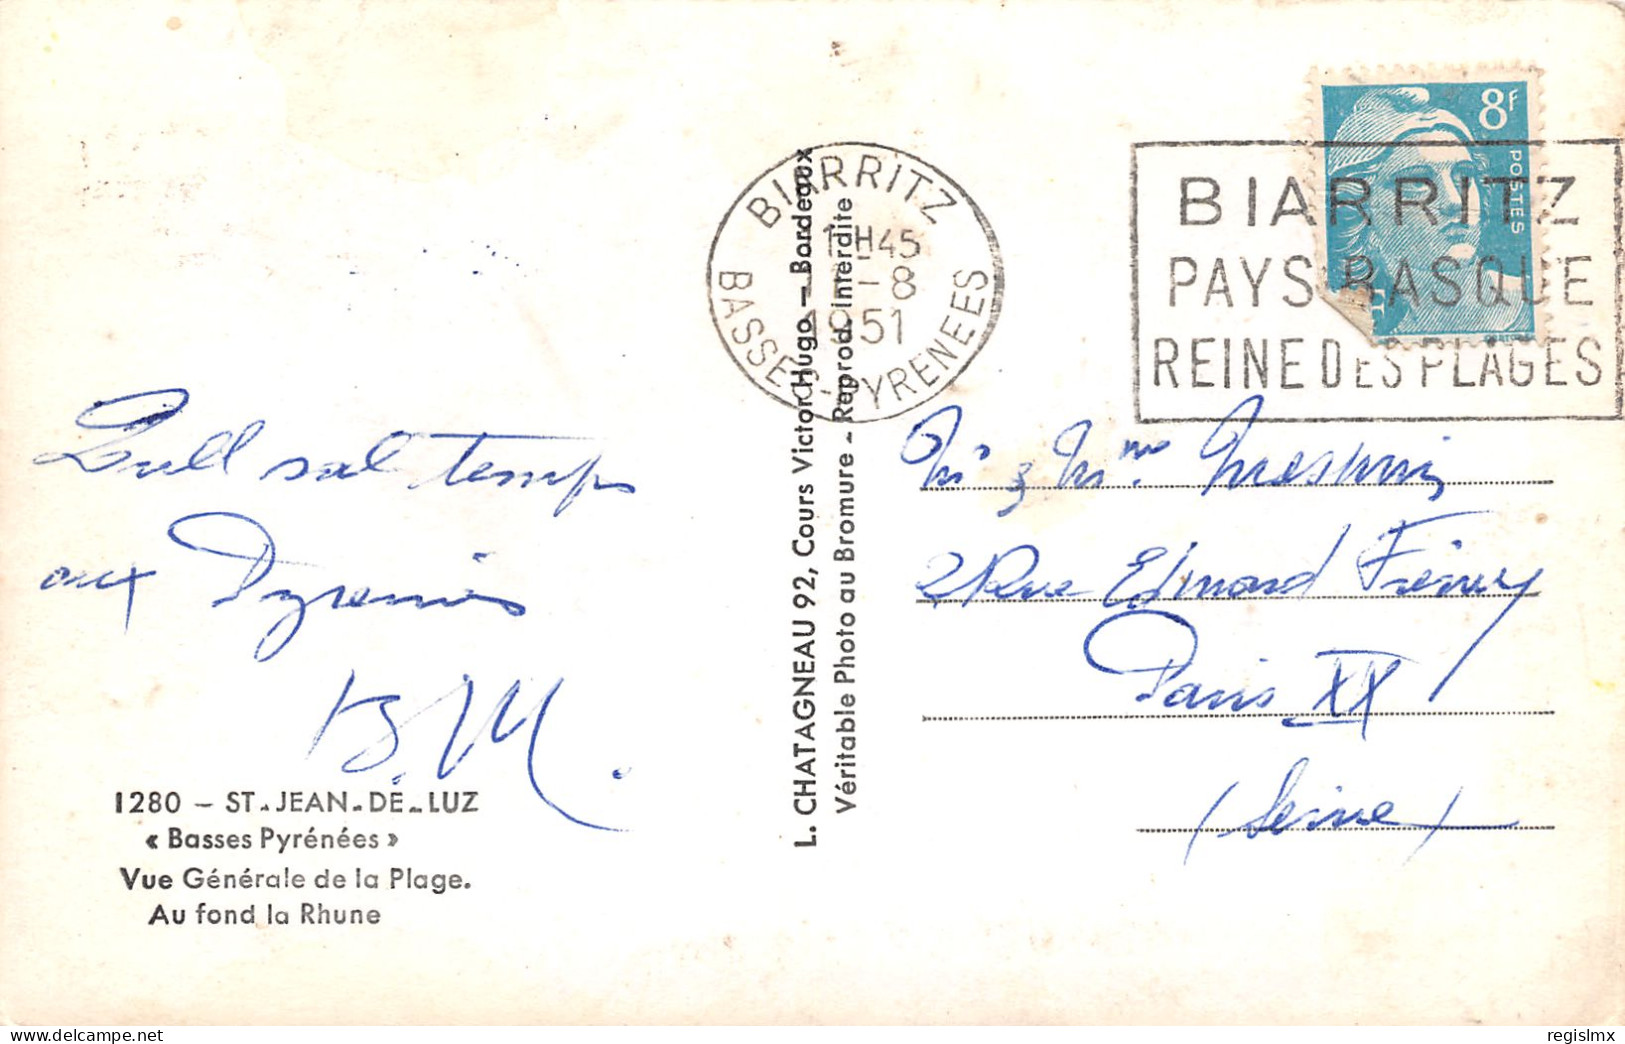 BIARRITZ
H45
-8
1951
BASSES-PYRENEES
8F
POSTES
BIARRITZ
PAYS BASQUE
REINE DES PLAGES
sal temps
aux Pyrénées
B.M.
Mr & Mme
2 Rue Edmond
Paris XX
(Seine)
L. CHATAGNEAU 92, Cours Victor Hugo - Bordeaux
Véritable Photo au Bromure - Reprod. Interdite
1280 - ST-JEAN-DE-LUZ
« Basses Pyrénées »
Vue Générale de la Plage.
Au fond la Rhune
regislmx